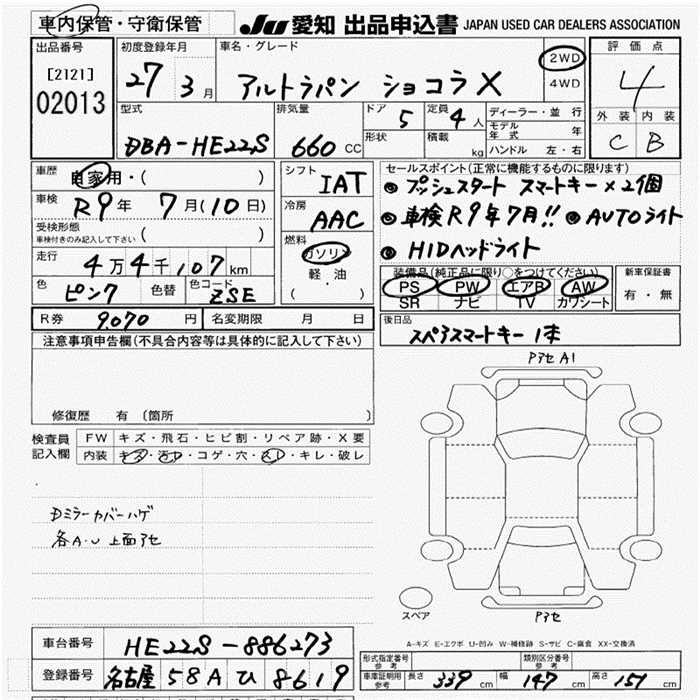 車内保管・守衛保管
JU 愛知 出品申込書 JAPAN USED CAR DEALERS ASSOCIATION
出品番号
[2121]
02013
初度登録年月
27 3月
車名・グレード
アルトラパン ショコラX
2WD
4WD
評価点
4
外装 内装
C B
型式
DBA-HE22S
排気量
660 CC
ドア 5
定員 4 人
形状
積載 kg
ディーラー・並行
モデル年式 年
ハンドル 左・右
車歴
自家用・( )
車検
R9年 7月(10日)
受検形態
車検付きのみ記入して下さい ( )
走行
4万4千107km
色
ピンク
色替
色コード
ZSE
シフト
IAT
冷房
AAC
燃料
ガソリン
軽・油
( )
セールスポイント(正常に機能するものに限ります)
●プッシュスタート スマートキー×2個
●車検R9年7月!! ●AUTOライト
●HIDヘッドライト
装備品(純正品に限り○をつけてください)
PS PW エアB AW
SR ナビ TV カワシート
新車保証書
有・無
R券 9,070 円
名変期限 月 日
後日品
スペアスマートキー 1本
注意事項申告欄(不具合内容等は具体的に記入して下さい)
修復歴 有 〔箇所
検査員記入欄
FW キズ・飛石・ヒビ割・リペア跡・X要
内装 キズ・汚レ・コゲ・穴・スレ・キレ・破レ
Dミラーカバーハゲ
各A・U 上面アセ
Pアセ A1
Pアセ
スペア
A-キズ E-エクボ U-凹み W-補修跡 S-サビ C-腐食 XX-交換済
車台番号 HE22S-886273
登録番号 名古屋 58A ひ 8619
形式指定番号 参考
類別区分番号 参考
車庫証明用 参考
長さ 339 cm 幅 147 cm 高さ 151 cm